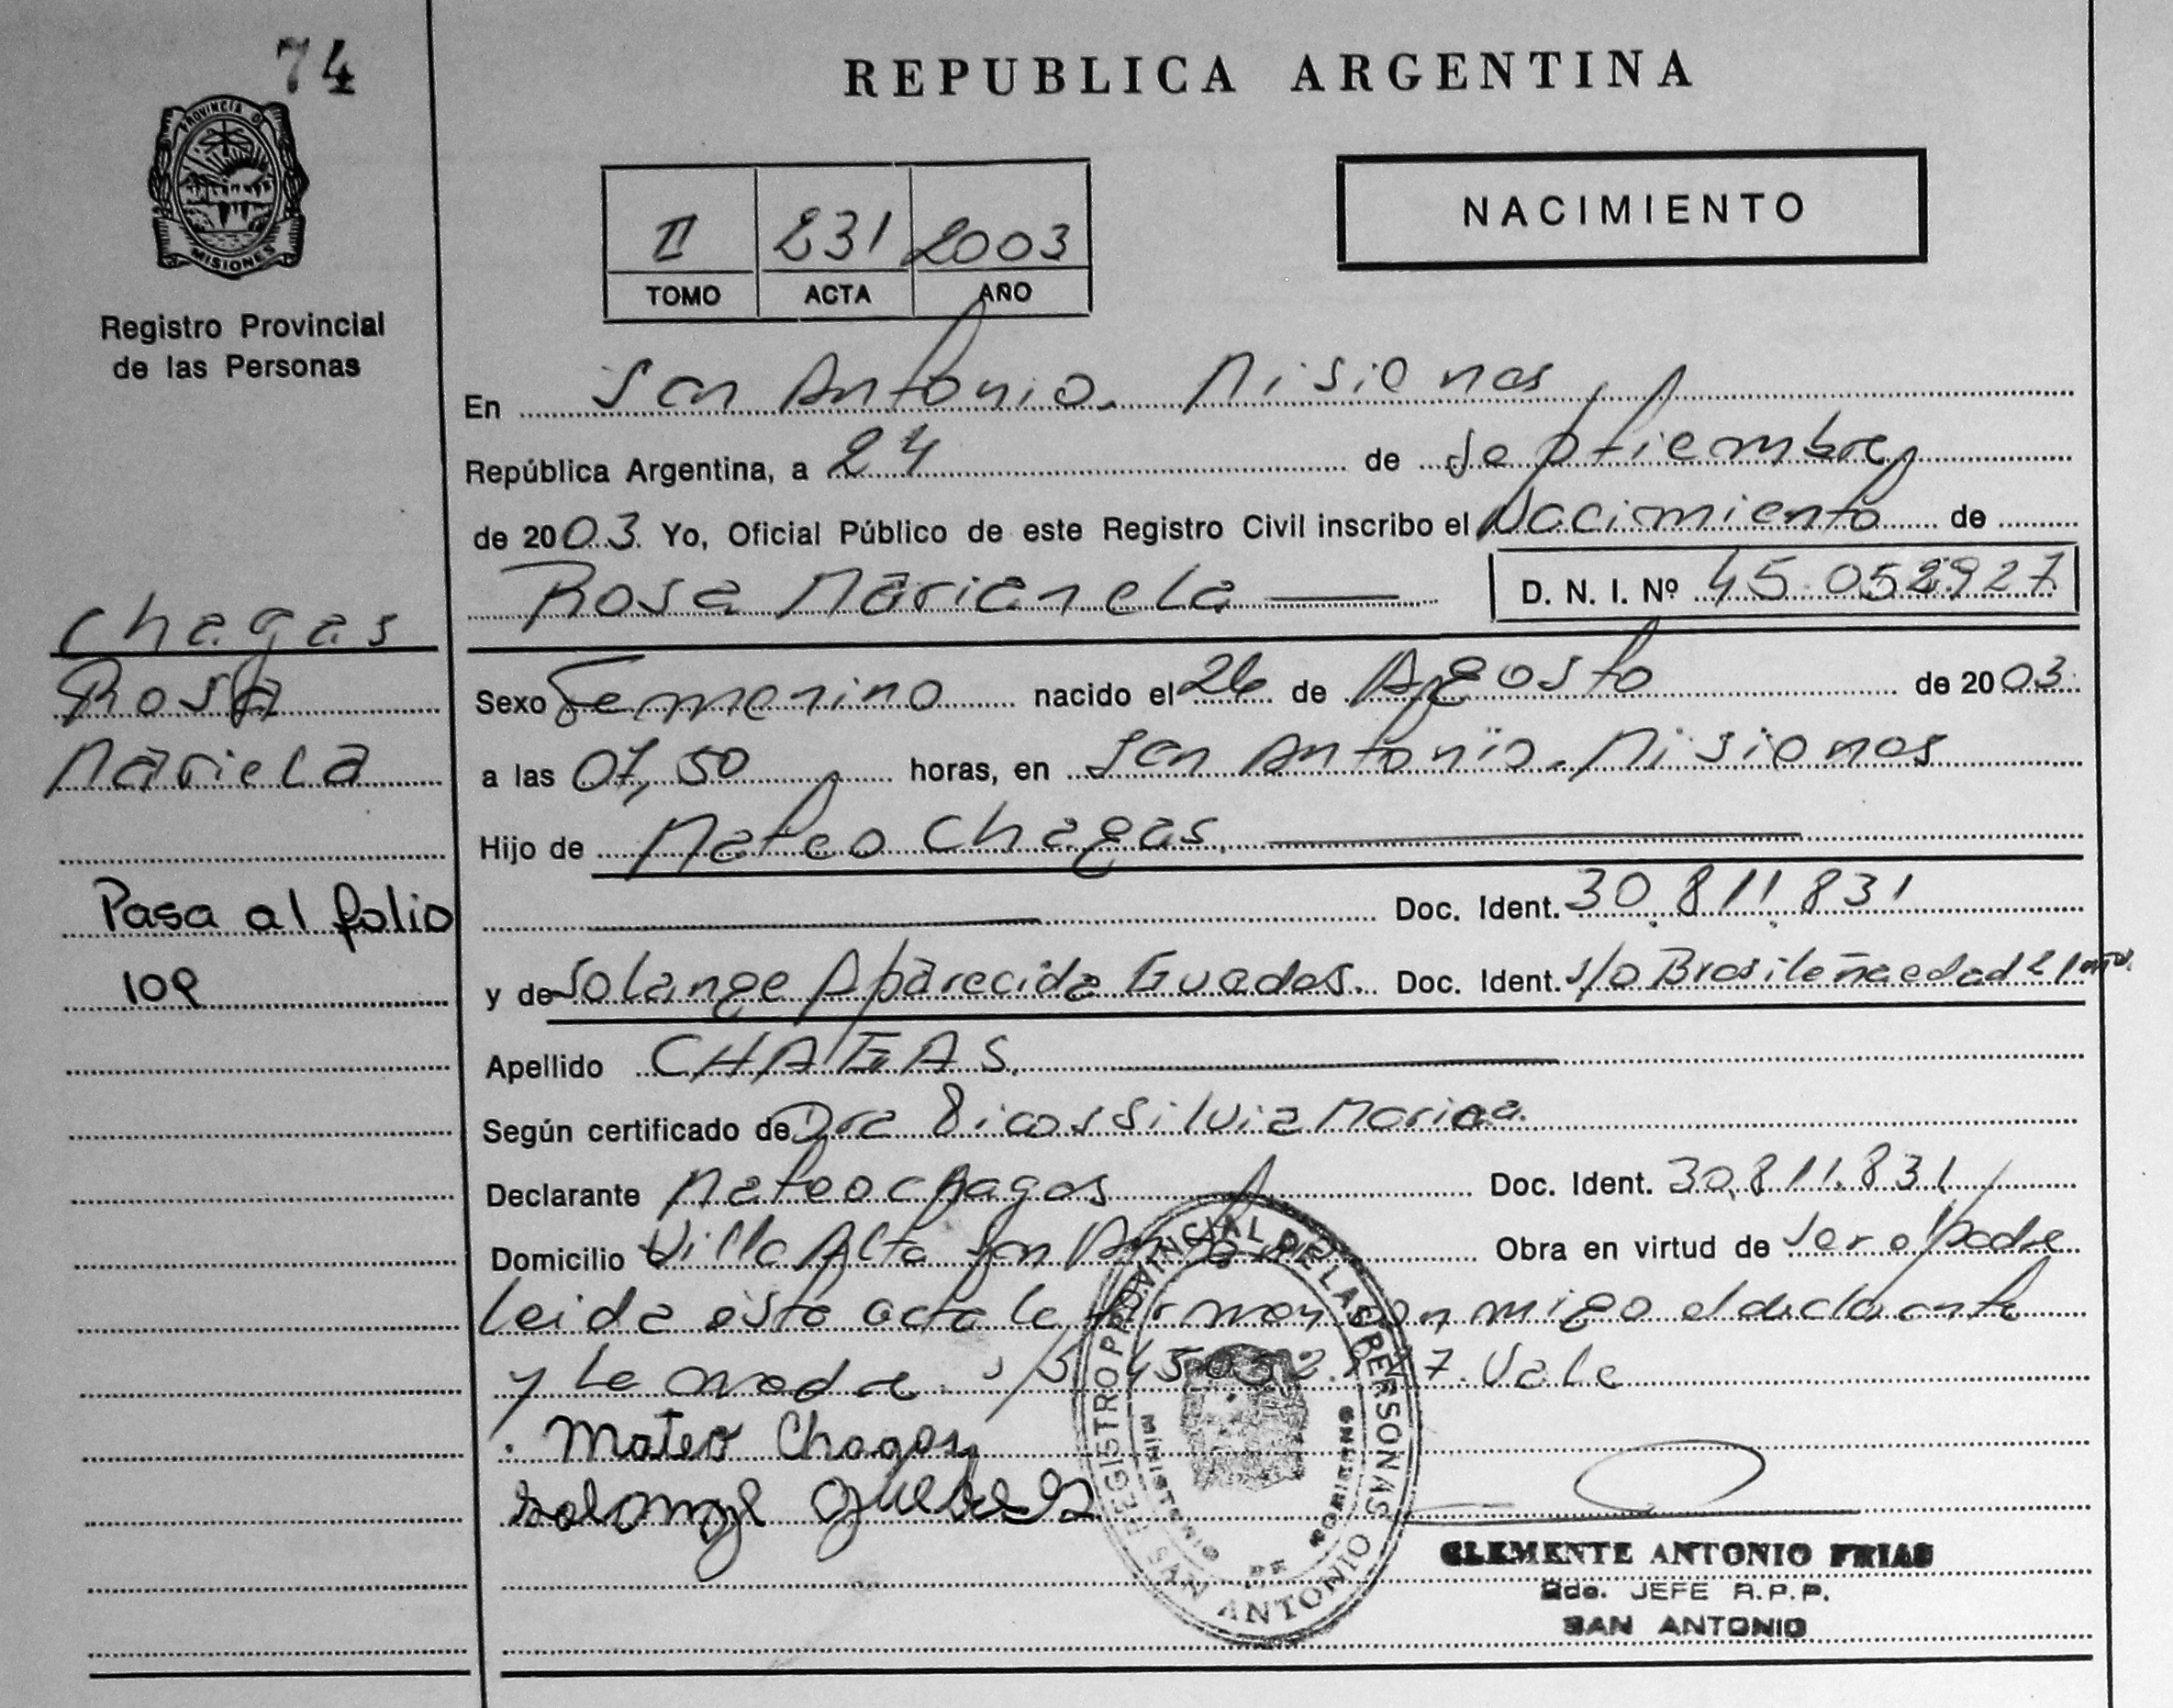 74
PROVINCIA DE
MISIONES
Registro Provincial
de las Personas
REPUBLICA ARGENTINA
II 231 2003
TOMO ACTA AÑO
NACIMIENTO
En San Antonio. Misiones,
República Argentina, a 24 de Septiembre
de 2003 Yo, Oficial Público de este Registro Civil inscribo el Nacimiento de
Rosa Marianela D. N. I. Nº 45.052927
Chagas
Rosa
Mariela
Sexo Femenino nacido el 26 de Agosto de 2003
a las 07,50 horas, en San Antonio. Misiones
Hijo de Mateo Chagas.
Pasa al folio
109
Doc. Ident. 30.811.831
y de Solange Aparecida Guedes. Doc. Ident. s/o Brasileña edad 21 años.
Apellido CHAGAS.
Según certificado de Dra Silvia
Declarante Mateo Chagas Doc. Ident. 30.811.831
Domicilio Villa Alta San Antonio Obra en virtud de Ser el Padre
Leida esta acta la firman conmigo el declarante
y la madre. S/S 45.052.927. Vale
Mateo Chagas
Solange Guedes
REGISTRO PROVINCIAL DE LAS PERSONAS
MINISTERIO DE GOBIERNO
SAN ANTONIO
CLEMENTE ANTONIO FRIAS
2do. JEFE R.P.P.
SAN ANTONIO